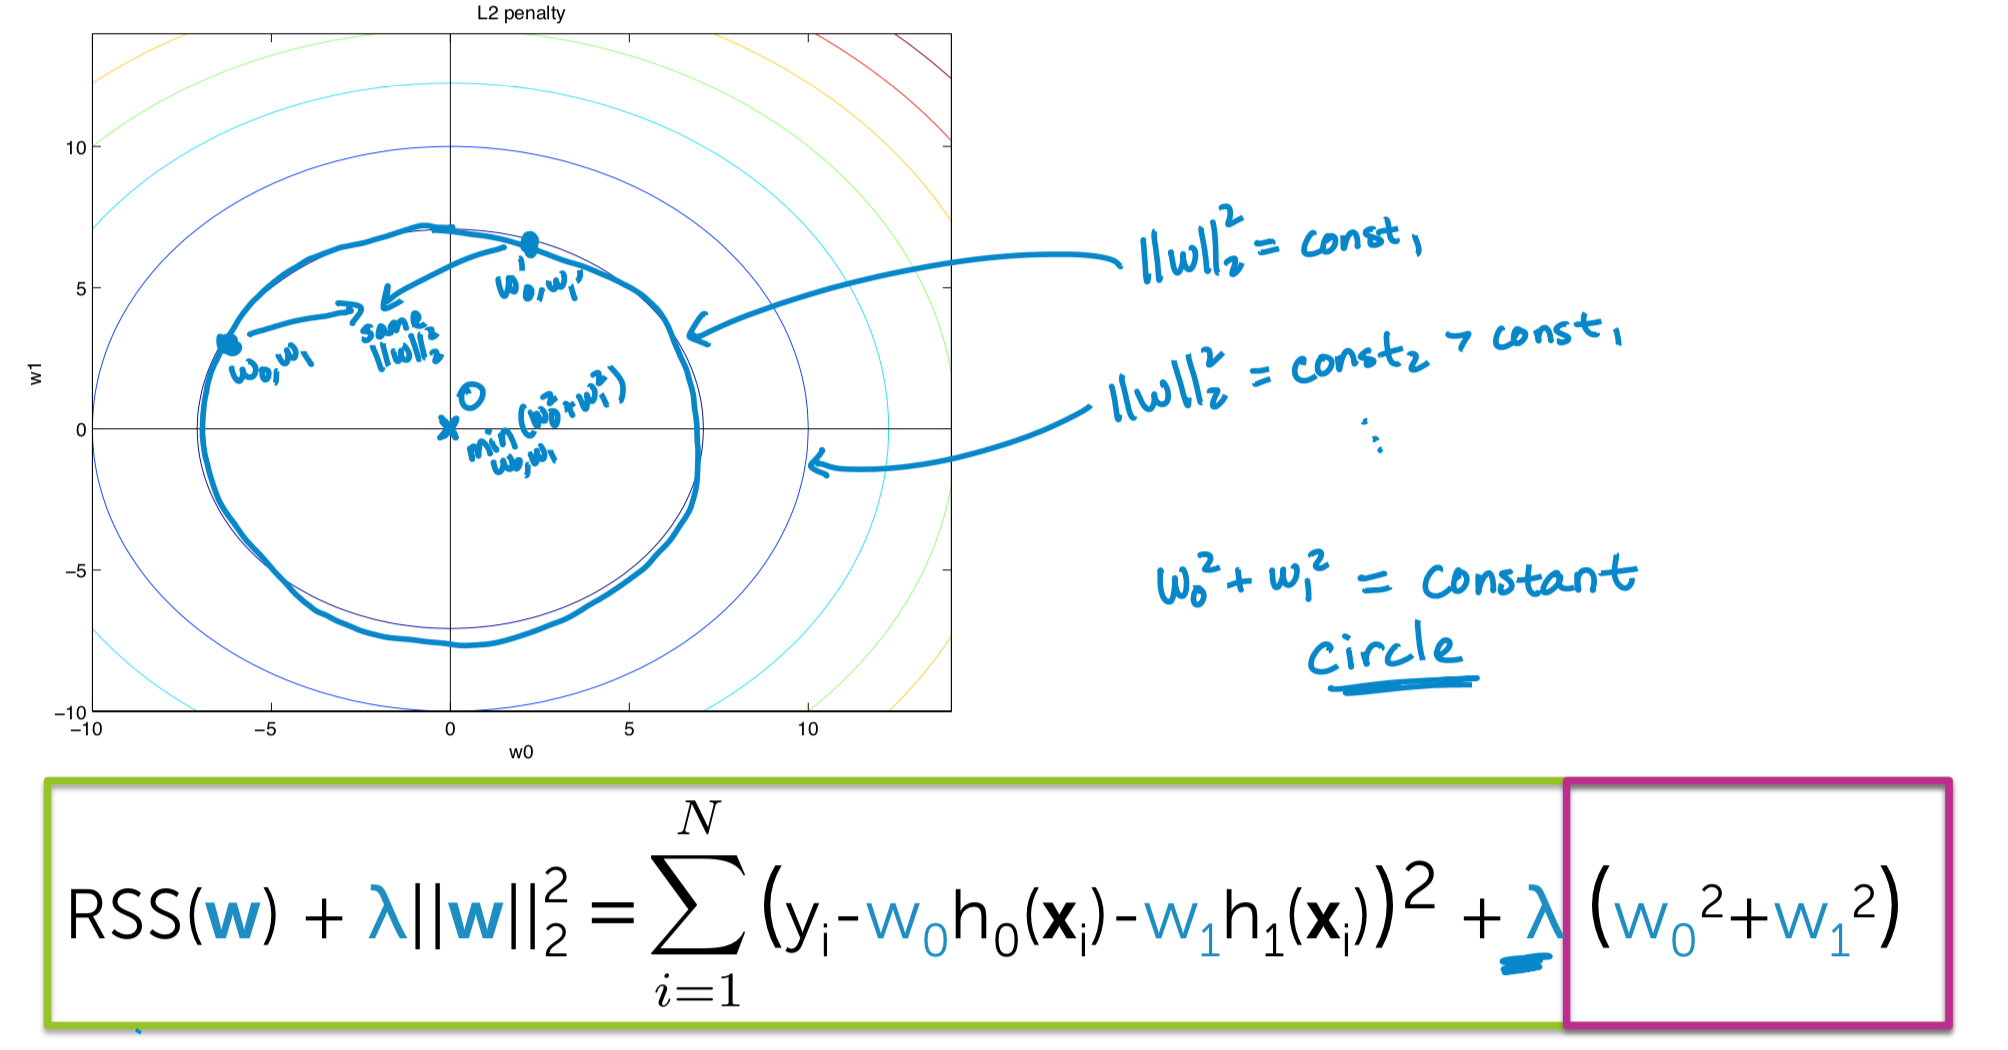 L2 penalty
10
5
0
−5
−10
w1
−10 −5 0 5 10
w0
w₀', w₁'
same
||w||₂²
w₀, w₁
0
min (w₀²+w₁²)
w₀,w₁
||w||₂² = const₁
||w||₂² = const₂ > const₁
⋮
w₀² + w₁² = constant
circle
RSS(w) + λ||w||₂² = ∑_{i=1}^{N} (yᵢ-w₀h₀(xᵢ)-w₁h₁(xᵢ))² + λ (w₀²+w₁²)